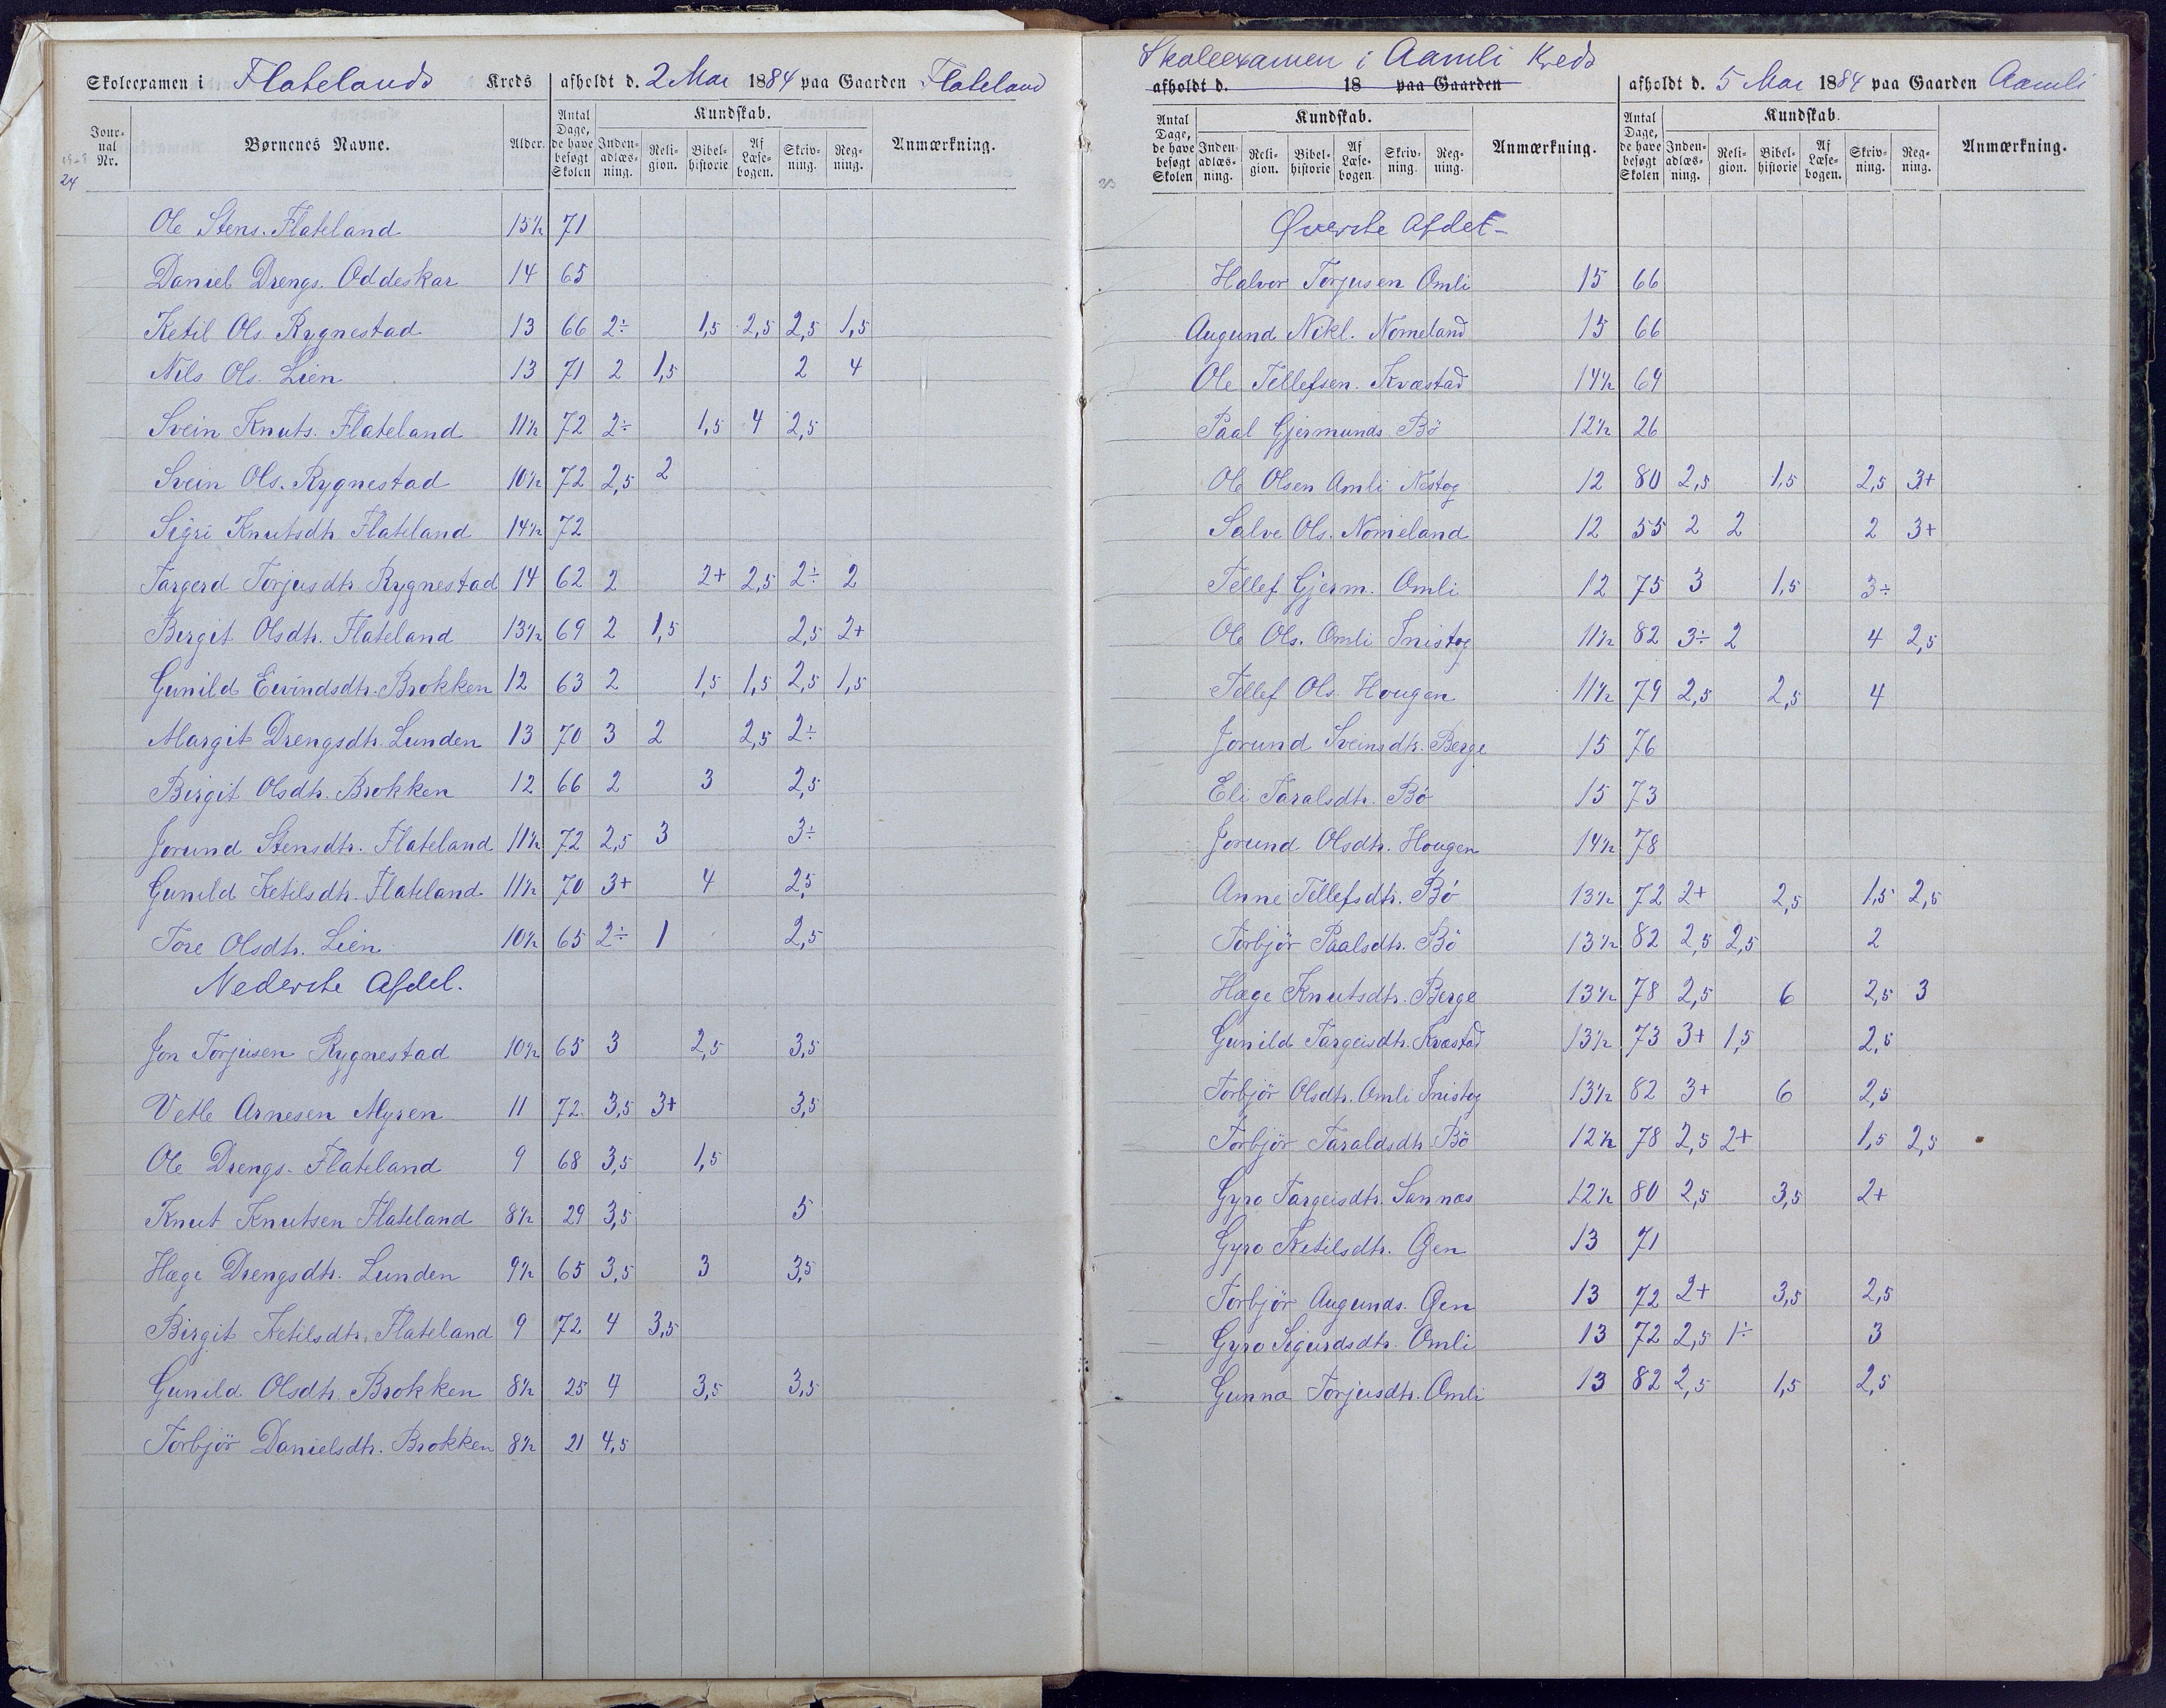 Skoleexamen i Flatelands Kreds afholdt d. 2 Mai 1884 paa Gaarden Flateland
Jour-nal Nr. Børnenes Navne. Alder. Antal Dage, de have besøgt Skolen Kundskab. Inden-adlæs-ning. Reli-gion. Bibel-historie Af Læse-bogen. Skriv-ning. Reg-ning. Anmærkning.
24
Ole Stens. Flateland 15½ 71
Daniel Drengs. Oddeskar 14 65
Ketil Ols. Rygnestad 13 66 2÷ 1,5 2,5 2,5 1,5
Nils Ols. Lien 13 71 2 1,5 2 4
Svein Knuts. Flateland 11½ 72 2÷ 1,5 4 2,5
Svein Ols. Rygnestad 10½ 72 2,5 2
Sigri Knutsdtr Flateland 14½ 72
Targerd Torjusdtr. Rygnestad 14 62 2 2+ 2,5 2÷ 2
Birgit Olsdtr. Flateland 13½ 69 2 1,5 2,5 2+
Gunild Eivindsdtr. Brokken 12 63 2 1,5 1,5 2,5 1,5
Margit Drengsdtr. Lunden 13 70 3 2 2,5 2÷
Birgit Olsdtr. Brokken 12 66 2 3 2,5
Jorund Stensdtr. Flateland 11½ 72 2,5 3 3÷
Gunild Ketilsdtr. Flateland 11½ 70 3+ 4 2,5
Tore Olsdtr. Lien 10½ 65 2÷ 1 2,5
Nederste Afdel.
Jon Torjusen Rygnestad 10½ 65 3 2,5 3,5
Vetle Arnesen Myren 11 72 3,5 3+ 3,5
Ole Drengs. Flateland 9 68 3,5 1,5
Knut Knutsen Flateland 8½ 29 3,5 5
Hæge Drengsdtr. Lunden 9½ 65 3,5 3 3,5
Birgit Ketilsdtr. Flateland 9 72 4 3,5
Gunild Olsdtr. Brokken 8½ 25 4 3,5 3,5
Torbjör Danielsdtr. Brokken 8½ 21 4,5
Skoleexamen i Aamli Kreds
afholdt d. 18 paa Gaarden afholdt d. 5 Mai 1884 paa Gaarden Aamli
Antal Dage, de have besøgt Skolen Kundskab. Inden-adlæs-ning. Reli-gion. Bibel-historie Af Læse-bogen. Skriv-ning. Reg-ning. Anmærkning. Antal Dage, de have besøgt Skolen Kundskab. Inden-adlæs-ning. Reli-gion. Bibel-historie Af Læse-bogen. Skriv-ning. Reg-ning. Anmærkning.
Øverste Afdel
Halvor Torjusen Omli 15 66
Augund Nikl. Nomeland 15 66
Ole Tellefsen. Kvæstad 14½ 69
Paal Gjermunds. Bö 12½ 26
Ole Olsen Omli Nistog 12 80 2,5 1,5 2,5 3+
Salve Ols. Nomeland 12 55 2 2 2 3+
Tellef Gjerm. Omli 12 75 3 1,5 3÷
Ole Ols. Omli Inistog 11½ 82 3÷ 2 4 2,5
Tellef Ols. Hougen 11½ 79 2,5 2,5 4
Jorund Sveinsdtr. Berge 15 76
Eli Taralsdtr. Bö 15 73
Jorund Olsdtr. Hougen 14½ 78
Anne Tellefsdtr. Bö 13½ 72 2+ 2,5 1,5 2,5
Torbjör Paalsdtr. Bö 13½ 82 2,5 2,5 2
Hæge Knutsdtr. Berge 13½ 78 2,5 6 2,5 3
Gunild Targeisdtr. Kvæstad 13½ 73 3+ 1,5 2,5
Torbjör Olsdtr. Omli Inistog 13½ 82 3+ 6 2,5
Torbjör Taraldsdtr Bö 12½ 78 2,5 2+ 1,5 2,5
Gyro Targeisdtr. Sannes 12½ 80 2,5 3,5 2+
Gyro Ketilsdtr. Gen 13 71
Torbjör Augunds. Gen 13 72 2+ 3,5 2,5
Gyro Sigurdsdtr. Omli 13 72 2,5 1÷ 3
Gunna Torjusdtr. Omli 13 82 2,5 1,5 2,5